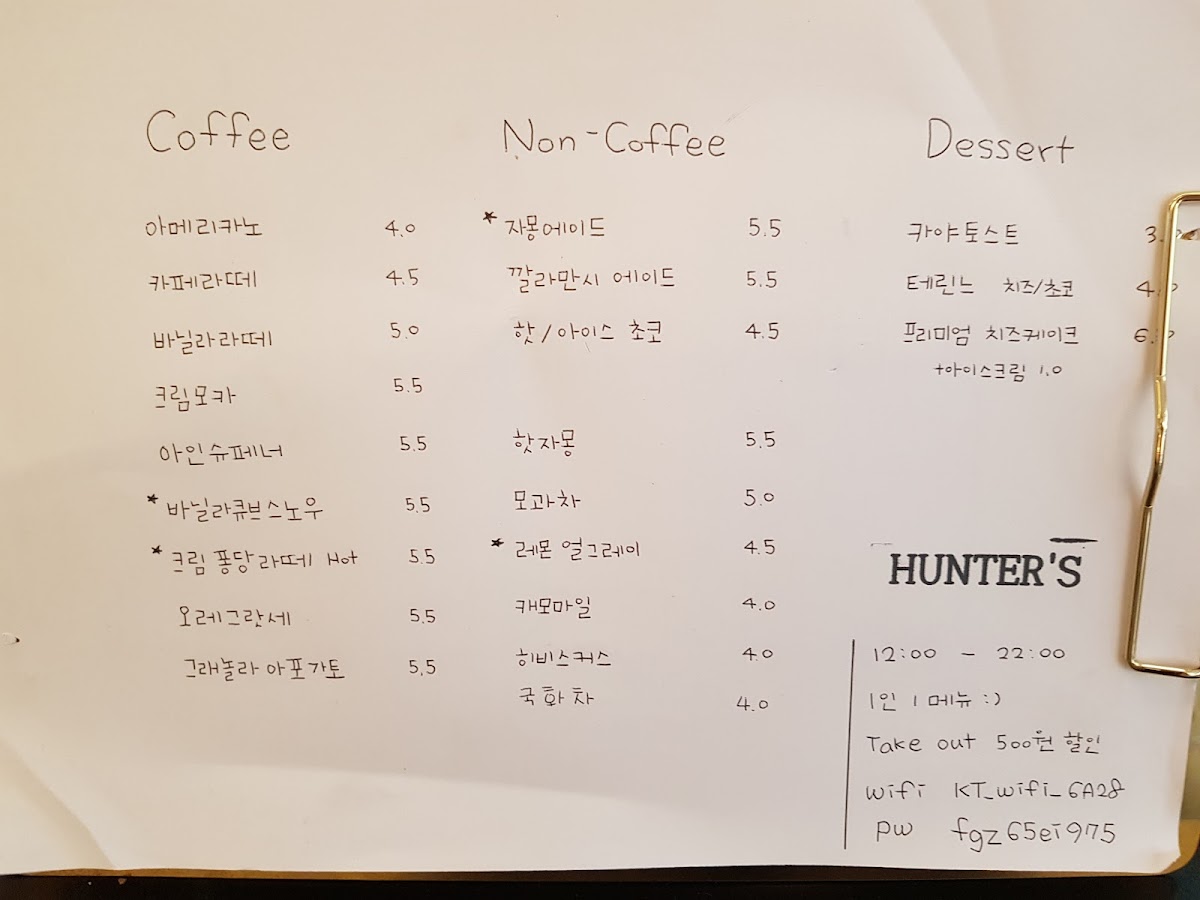 Coffee
아메리카노 4.0
카페라떼 4.5
바닐라라떼 5.0
크림모카 5.5
아인슈페너 5.5
★ 바닐라큐브스노우 5.5
★ 크림 퐁당 라떼 Hot 5.5
오레그랏세 5.5
그래놀라 아포가토 5.5
Non-Coffee
★ 자몽에이드 5.5
깔라만시 에이드 5.5
핫/아이스 초코 4.5
핫자몽 5.5
모과차 5.0
★ 레몬 얼그레이 4.5
캐모마일 4.0
히비스커스 4.0
국화차 4.0
Dessert
카야토스트
테린느 치즈/초코
프리미엄 치즈케이크
+아이스크림 1.0
HUNTER'S
12:00 - 22:00
1인 1메뉴 :)
Take out 500원 할인
wifi KT_wifi_6A28
PW fgz65ei975